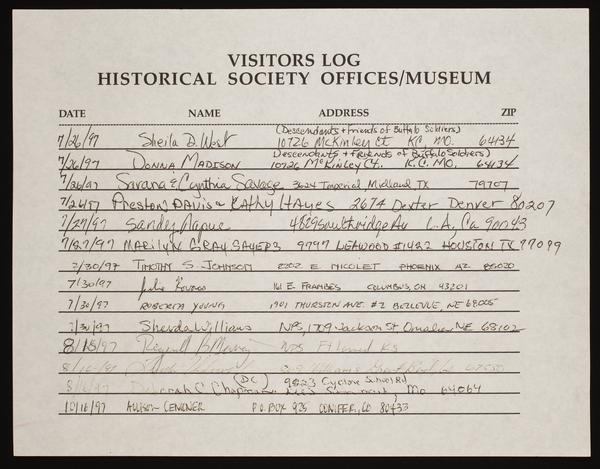 VISITORS LOG
HISTORICAL SOCIETY OFFICES/MUSEUM
DATE NAME ADDRESS ZIP
(Descendants + Friends of Buffalo Soldiers)
7/26/97 Sheila D. West 10726 McKinley Ct KC, MO. 64134
(Descendants + Friends of Buffalo Soldiers)
7/26/97 DONNA MADISON 10726 McKinley Ct. K.C. MO. 64134
7/26/97 & Cynthia Savage 3624 Imperial Midland TX 79707
7/26/97 Preston Davis & Kathy Hayes 2674 Dexter Denver 80207
7/27/97 Sandez 4829 Southridge Av L.A, Ca 90043
7/27/97 MARILYN GRAY SAYERS 9797 LEAWOOD #1422 HOUSTON TX 77099
7/30/97 TIMOTHY S. JOHNSON 2202 E NICOLET PHOENIX AZ 85020
7/30/97 Julie 161 E. FRAMBES COLUMBUS, OH 43201
7/30/97 ROBERTA YOUNG 1901 THURSTON AVE #2 BELLEVUE, NE 68005
7/30/97 Sherda Williams NPS, 1709 Jackson St Omaha NE 68102
8/15/97 NPS Ft Larned KS
(DC) 9823 Cyclone School Rd
Deborah C Chapman Mo 64064
10/16/97 ALLISON P.O. BOX 925 CONIFER, CO 80433